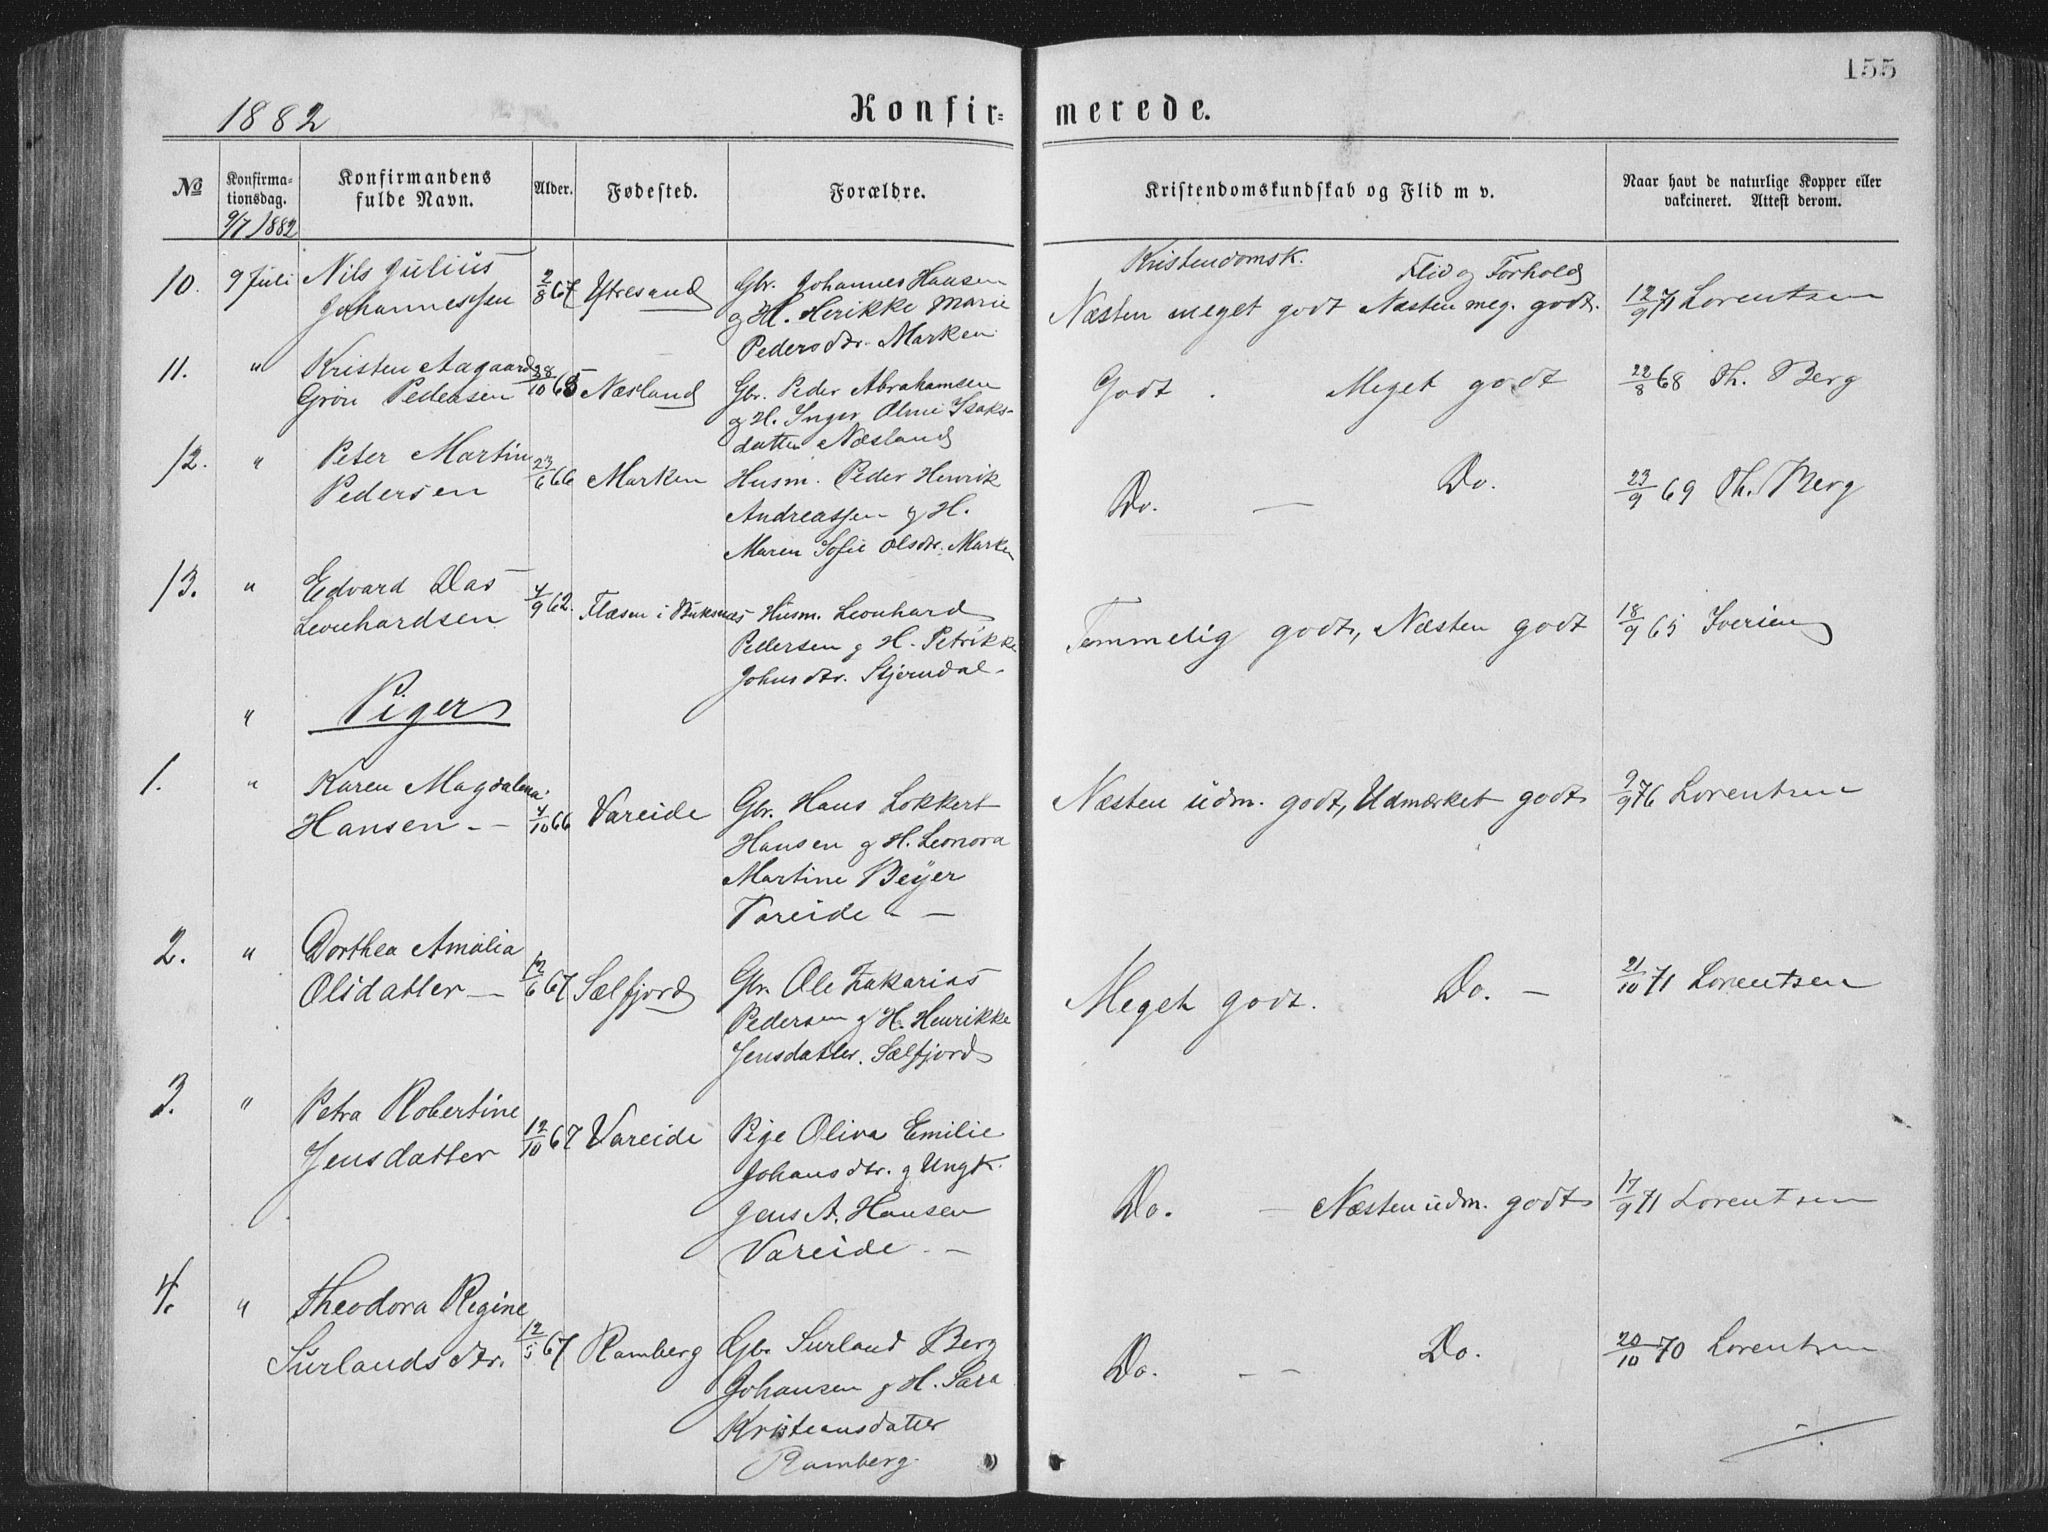 155
1882
Konfir=merede.
No
Konfirma-
tionsdag.
9/7 1882
Konfirmandens
fulde Navn.
Alder.
Fødested.
Forældre.
Kristendomskundskab og Flid m v.
Naar havt de naturlige Kopper eller
vakcineret. Attest derom.
Kristendomsk. Flid og Forhold
10. 9 Juli Nils Julius
Johannessen 2/8 67 Ytresand
Gbr. Johannes Hansen
og H. Henrikke Marie
Pedersdtr. Marken
Næsten meget godt Næsten meg. godt. 12/9 71 Lorentsen
11. " Kristen Aagaard
Grön Pedersen 28/10 65 Næsland
Gbr. Peder Abrahamsen
og H. Inger Oline Isaks-
datter Næsland
Godt. Meget godt 22/8 68 Th. Berg
12. " Peter Martin
Pedersen 23/6 66 Marken
Husm. Peder Henrik
Andreassen og H.
Maren Sofie Olsdtr. Marken
Do. — Do. 23/9 69 Th. Berg
13. " Edvard Das
Leonhardsen 4/9 62. Flæsen i Buksnæs
Husm. Leonhard
Pedersen og H. Petrikke
Johnsdtr. Stjerndal-
Temmelig godt, Næsten godt 18/9 65 Iversen
" Piger
1. " Karen Magdalena
Hansen - — 4/10 66 Vareide
Gbr. Hans Lokkert
Hansen og H. Leonora
Martine Beyer
Vareide - —
Næsten udm. godt, Udmærket godt 9/9 76 Lorentsen
2. " Dorthea Amalia
Olsdatter — 12/6 67 Sælfjord
Gbr. Ole Zakarias
Pedersen og H. Henrikke
Jensdatter. Sælfjord
Meget godt. Do. — 21/10 71 Lorentsen
3. " Petra Robertine
Jensdatter 12/10 67 Vareide
Pige Oliva Emilie
Johansdtr. og Ungk.
Jens A. Hansen
Vareide - —
Do. — Næsten udm. godt 17/9 71 Lorentsen
4. " Theodora Regine
Surlandsdtr. 12/5 67 Ramberg
Gbr. Surland Berg
Johansen og H. Sara
Kristiansdatter
Ramberg.
Do. - — Do. 20/10 70 Lorentsen